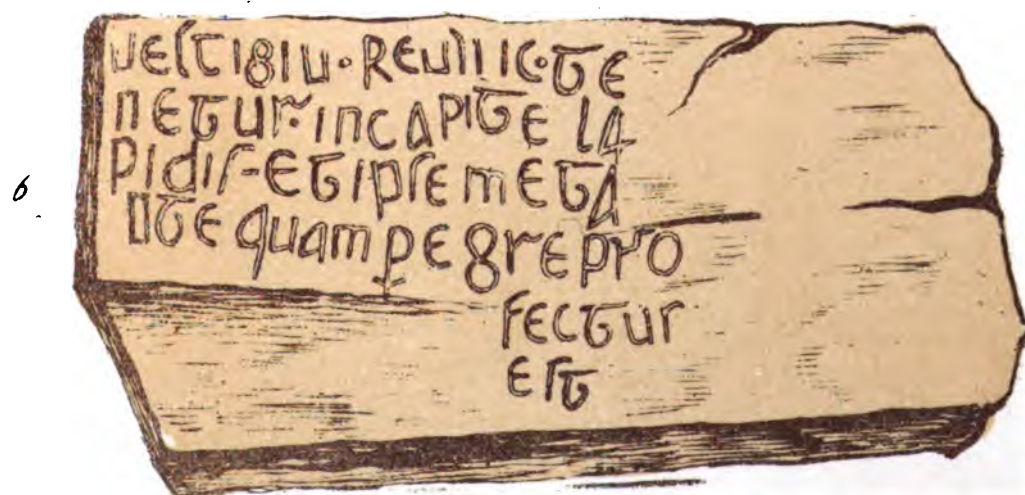 uestigiu·Reullic·te
netur·incapite la
pidis-etipsemeta
nte quam pegrepro
fectus
est
6